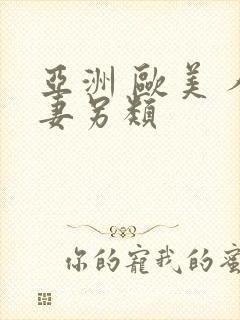 亞洲歐美
妻另類
你的寵我的蜜